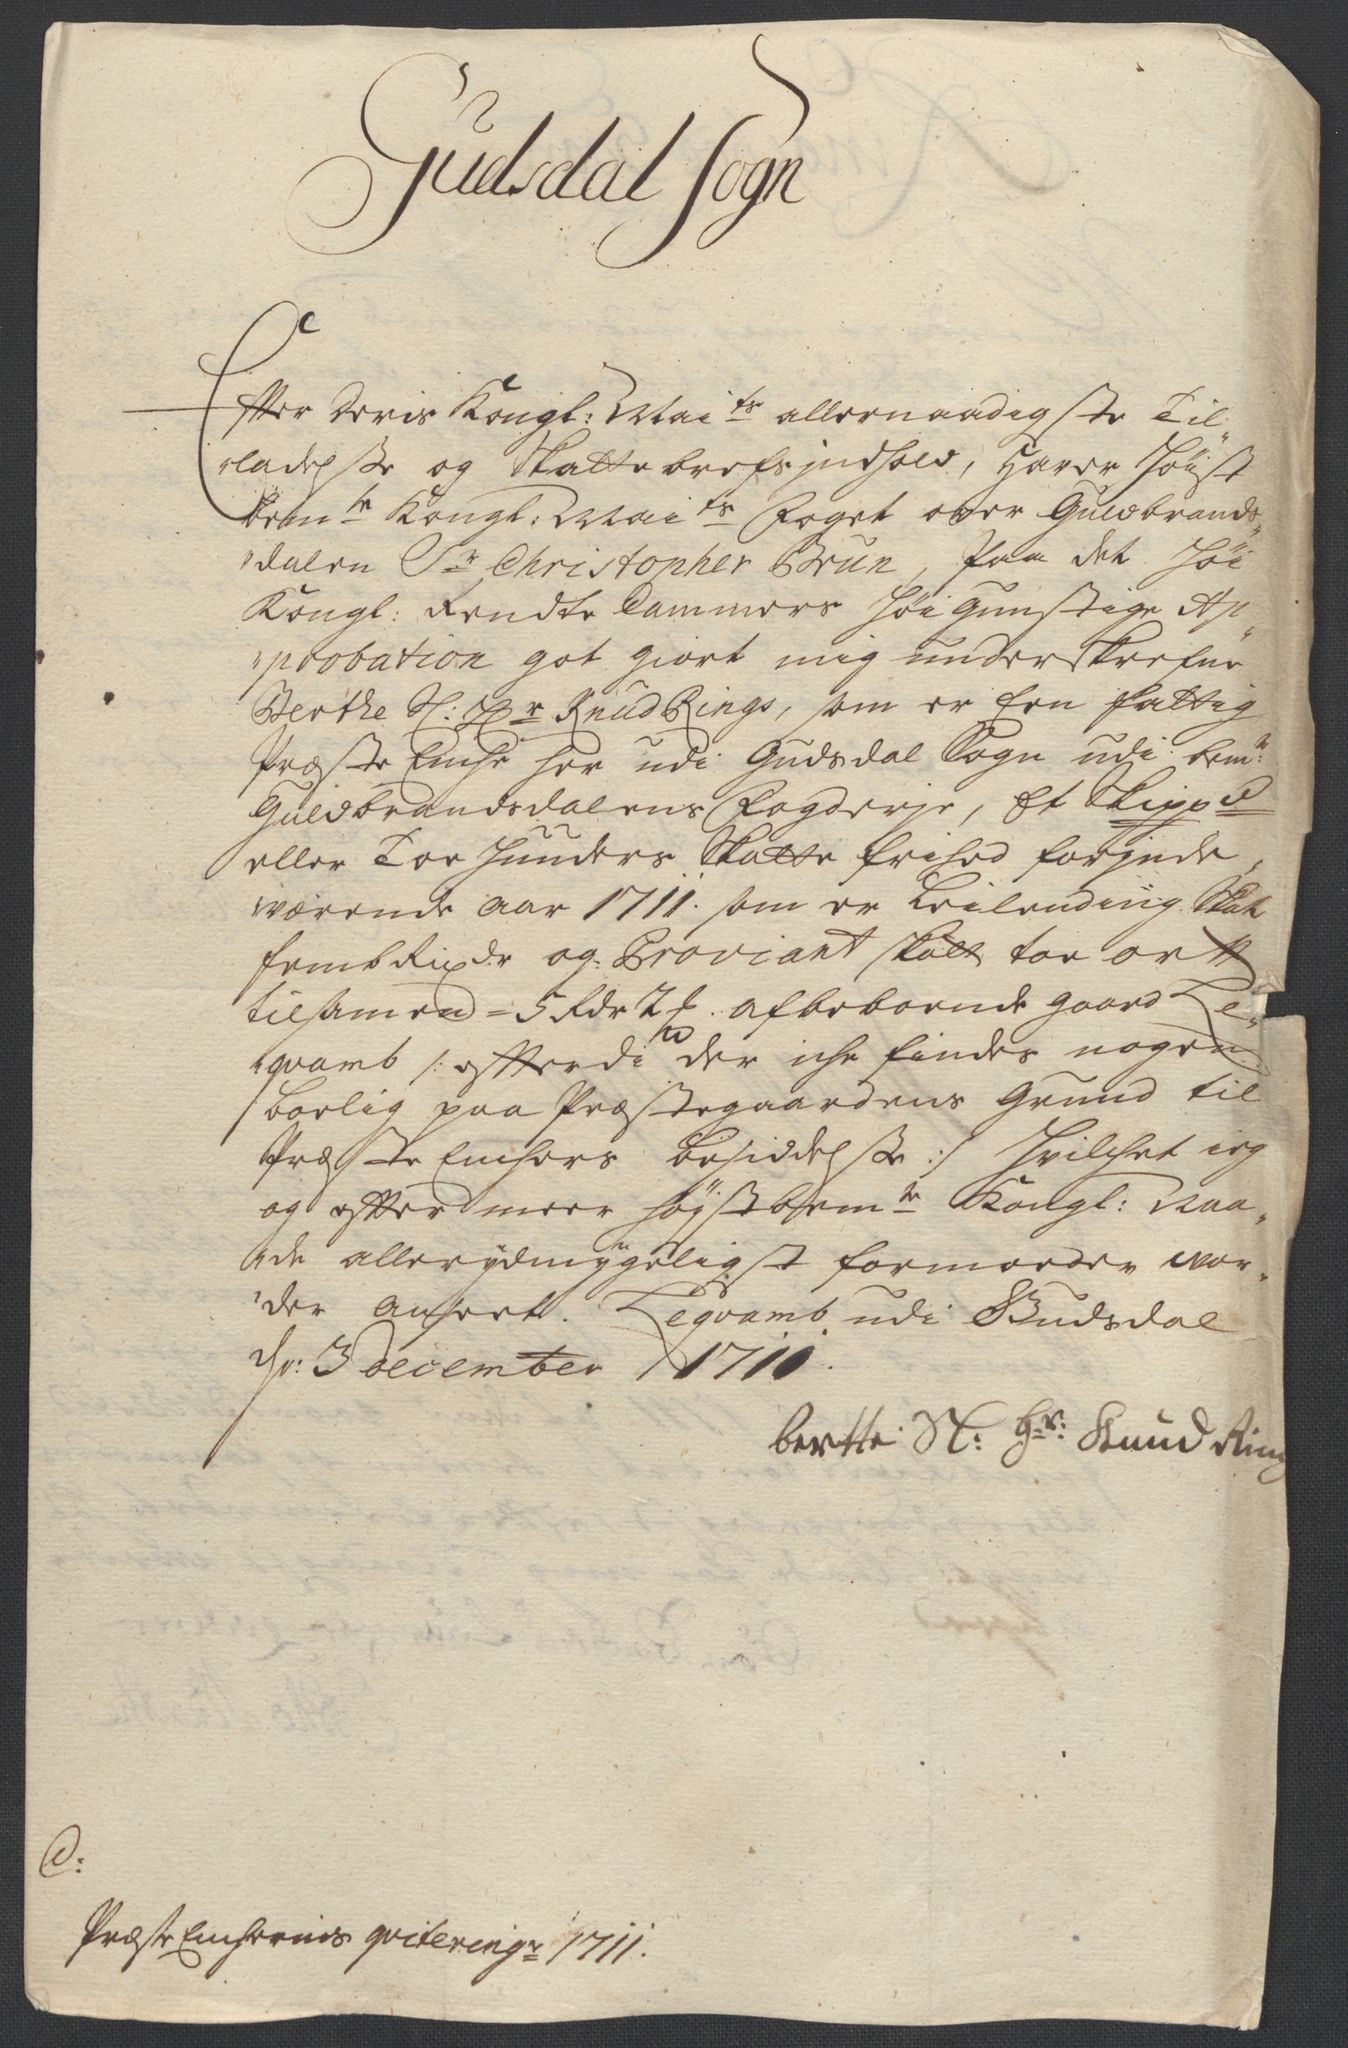 Gudsdal Sogn
Efter Deris Kongl: Maits allernaadigste Til„
„ladelsse og Skattebrefs indhold, Hafver Høist
bemte Kongl: Maits Foget ofver Guldbrands„
„dalen Sr Christopher Brun, paa det Høi
Kongl: Rendte Cammers Høigunstige Ap„
„probation got giort mig underskrefne
Berthe Sl: Hr Knud Rings, som er Een fattig
Præste Enche her udi Gudsdal Sogn udi bemte
Guldbrandsdalens Fogderje, Et Skippd
eller Toe Hunders Skatte frihed for inde„
„værende Aar 1711. som er Leilending Skat
femb Rixdr og Proviant skatt toe ort
tilsamen = 5 Rdr 2 ₰. af beboende gaard Le„
„qvamb /: efterdi der iche findes nogen
bolig paa Præstegaardens Grund til
Præste Enchers besiddelsse :/ Hvilchet ieg
og efter meer høistbemte Kongl: Naa„
„de allerydmygeligst formoder vor„
„der anført. Leqvamb udi Gudsdal
dn: 3 december 1711.
berthe Sl: Hr: Knud Ring
D:
Præste Enchernis qviteringr 1711.